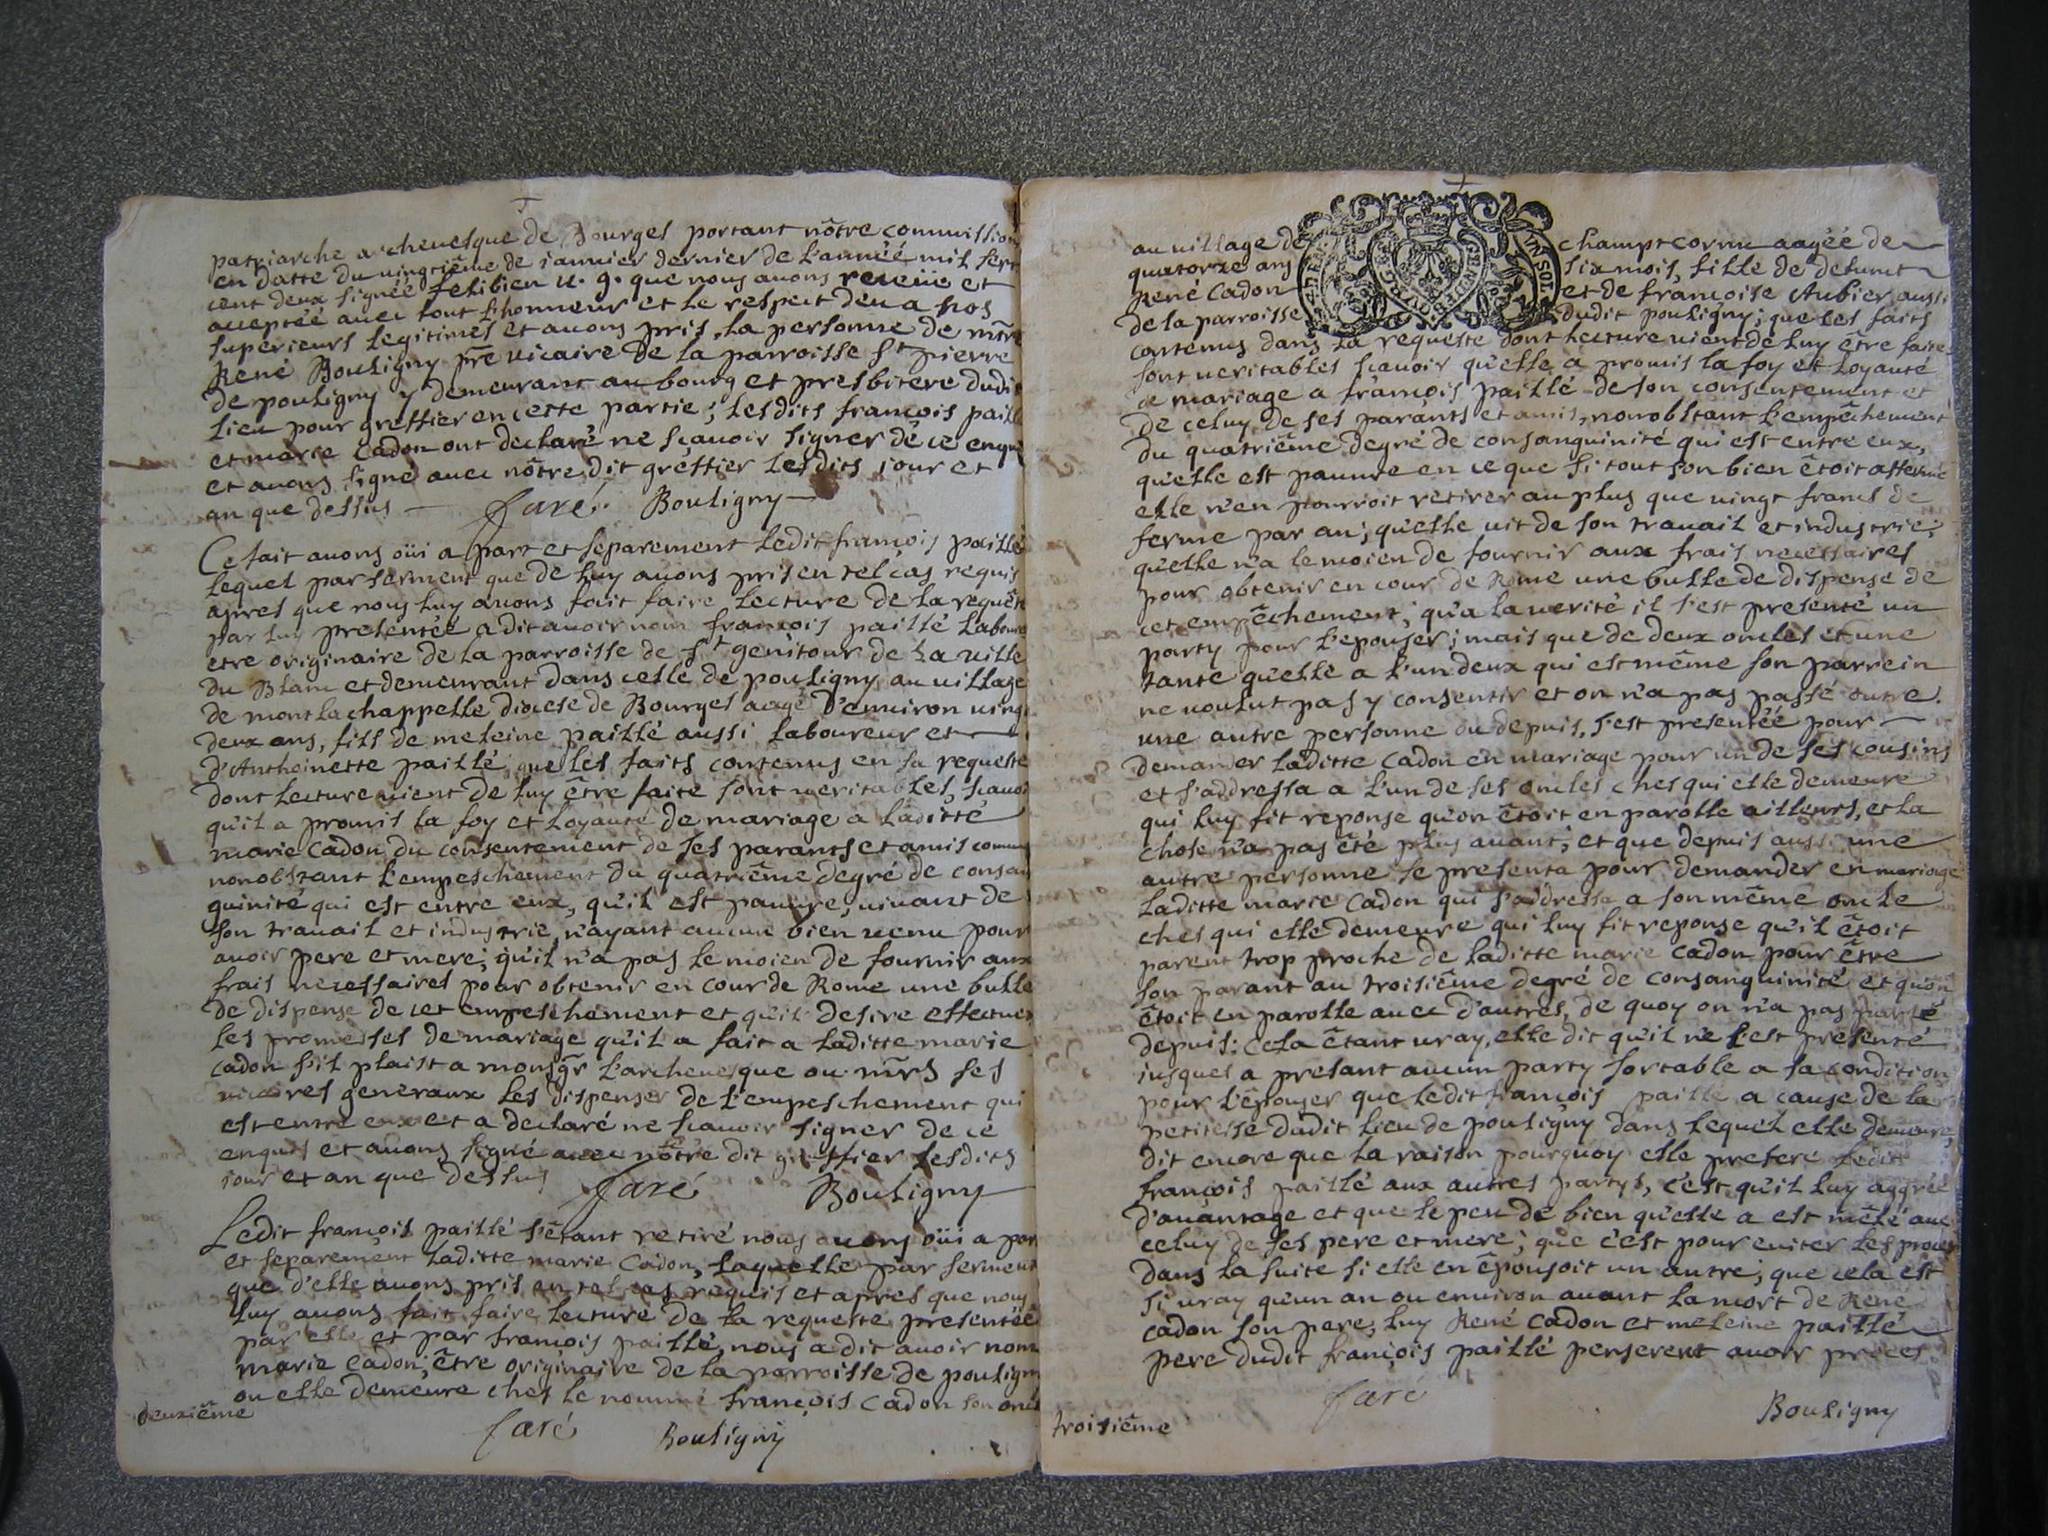 patriarche archevesque de Bourges portant nôtre commission
en datte du vingtiême de janvier dernier de l'année mil sept
cent deux signée felibien v. g. que nous avons receüe et
acceptée avec tout l'honneur et le respect deu a nos
superieurs legitimes et avons pris la personne de mr̃e
René Bouligny prẽ vicaire De la parroisse St pierre
de pouligny y demeurant au bourg et presbitere dudit
lieu pour greffier en cette partie; lesdits françois paillé
et marie cadon ont declaré ne sçavoir signer de ce enquis
et avons signé avec nôtre dit greffier lesdits jour et
an que dessus — faré. Bouligny —
Ce fait avons oüi a part et separement ledit françois paillé
lequel par serment que de luy avons pris en tel cas requis
apres que nous luy avons fait faire lecture de la requête
par luy presentée a dit avoir nom françois paillé laboureur
etre originaire de la parroisse de St genitour de la ville
du Blanc et demeurant dans celle de pouligny au village
de mont la chappelle diocese de Bourges aagé d'environ vingt
deux ans, fils de meleine paillé aussi laboureur et —
d'Anthoinette paillé; que les faits contenus en sa requeste
dont lecture vient de luy être faite sont veritables, sçavoir
qu'il a promis la foy et loyauté de mariage a laditte
marie cadon du consentement de ses parants et amis communs
nonobstant l'empeschement du quatriême degré de consan
guinité qui est entre eux, qu'il est pauvre, vivant de
son travail et industrie, n'ayant aucun bien venu pour
avoir pere et mere; qu'il n'a pas le moien de fournir aux
frais necessaires pour obtenir en cour de Rome une bulle
de dispense de cet empeschement et qu'il desire effectuer
les promesses de mariage qu'il a fait a laditte marie
cadon s'il plaist a monsgr̃ l'archevesque ou mr̃s ses
vicaires generaux les dispenser de l'empeschement qui
est entre eux et a declaré ne sçavoir signer de ce
enquis et avons signé avec nôtre dit greffier lesdits
jour et an que dessus faré Bouligny
Ledit françois paillé s'êtant retiré nous avons oüi a part
et separement laditte marie cadon, laquelle par serment
que d'elle avons pris en tel cas requis et apres que nous
luy avons fait faire lecture de la requeste presentée
par elle et par françois paillé, nous a dit avoir nom
marie cadon, être originaire de la parroisse de pouligny
ou elle demeure ches le nommé françois cadon son oncle
deuxiême
faré Bouligny
au village de champt cornu aagée de —
quatorze ans six mois, fille de defunct —
René Cadon et de françoise Aubier aussi
de la parroisse dudit pouligny; que les faits
contenus dans la requeste dont lecture vient de luy être faite
sont veritables sçavoir qu'elle a promis la foy et loyauté
de mariage a françois paillé de son consentement et
De celuy de ses parants et amis, nonobstant l'empêchement
du quatriême degré de consanguinité qui est entre eux,
qu'elle est pauvre en ce que si tout son bien êtoit affermé
elle n'en pourroit retirer au plus que vingt francs de
ferme par an; qu'elle vit de son travail et industrie;
qu'elle n'a le moien de fournir aux frais necessaires
pour obtenir en cour de Rome une bulle de dispense de
cet empêchement; qu'a la verité il s'est presenté un
party pour l'epouser; mais que de deux oncles et une
tante qu'elle a l'un deux qui est même son parrein
ne voulut pas y consentir et on n'a pas passé outre.
une autre personne du depuis, s'est presentée pour —
demander laditte cadon en mariage pour un de ses cousins
et s'addressa a l'un de ses oncles ches qui elle demeure
qui luy fit reponse qu'on êtoit en parolle ailleurs, et la
chose n'a pas êté plus avant; et que depuis aussi une
autre personne se presenta pour demander en mariage
laditte marie cadon qui s'addressa a son même oncle
ches qui elle demeure qui luy fit reponse qu'il êtoit
parent trop proche de laditte marie cadon pour être
son parant au troisiême degré de consanguinité et qu'on
êtoit en parolle avec d'autres, de quoy on n'a pas parlé
depuis: cela êtant vray, elle dit qu'il ne s'est presenté
jusques a presant aucun party sortable a sa condition
pour l'épouser que ledit françois paillé a cause de la
petitesse dudit lieu de pouligny dans lequel elle demeure,
dit encore que la raison pourquoy elle prefere ledit
françois paillé aux autres partys, c'est qu'il luy aggrée
d'avantage et que le peu de bien qu'elle a est mêlé avec
celuy de ses pere et mere; que c'est pour eviter les proces
dans la suite si elle en êpousoit un autre; que cela est
si vray qu'un an ou environ avant la mort de René
cadon son pere; luy René cadon et meleine paillé
pere dudit françois paillé penserent avoir proces
faré Bouligny
troisiême